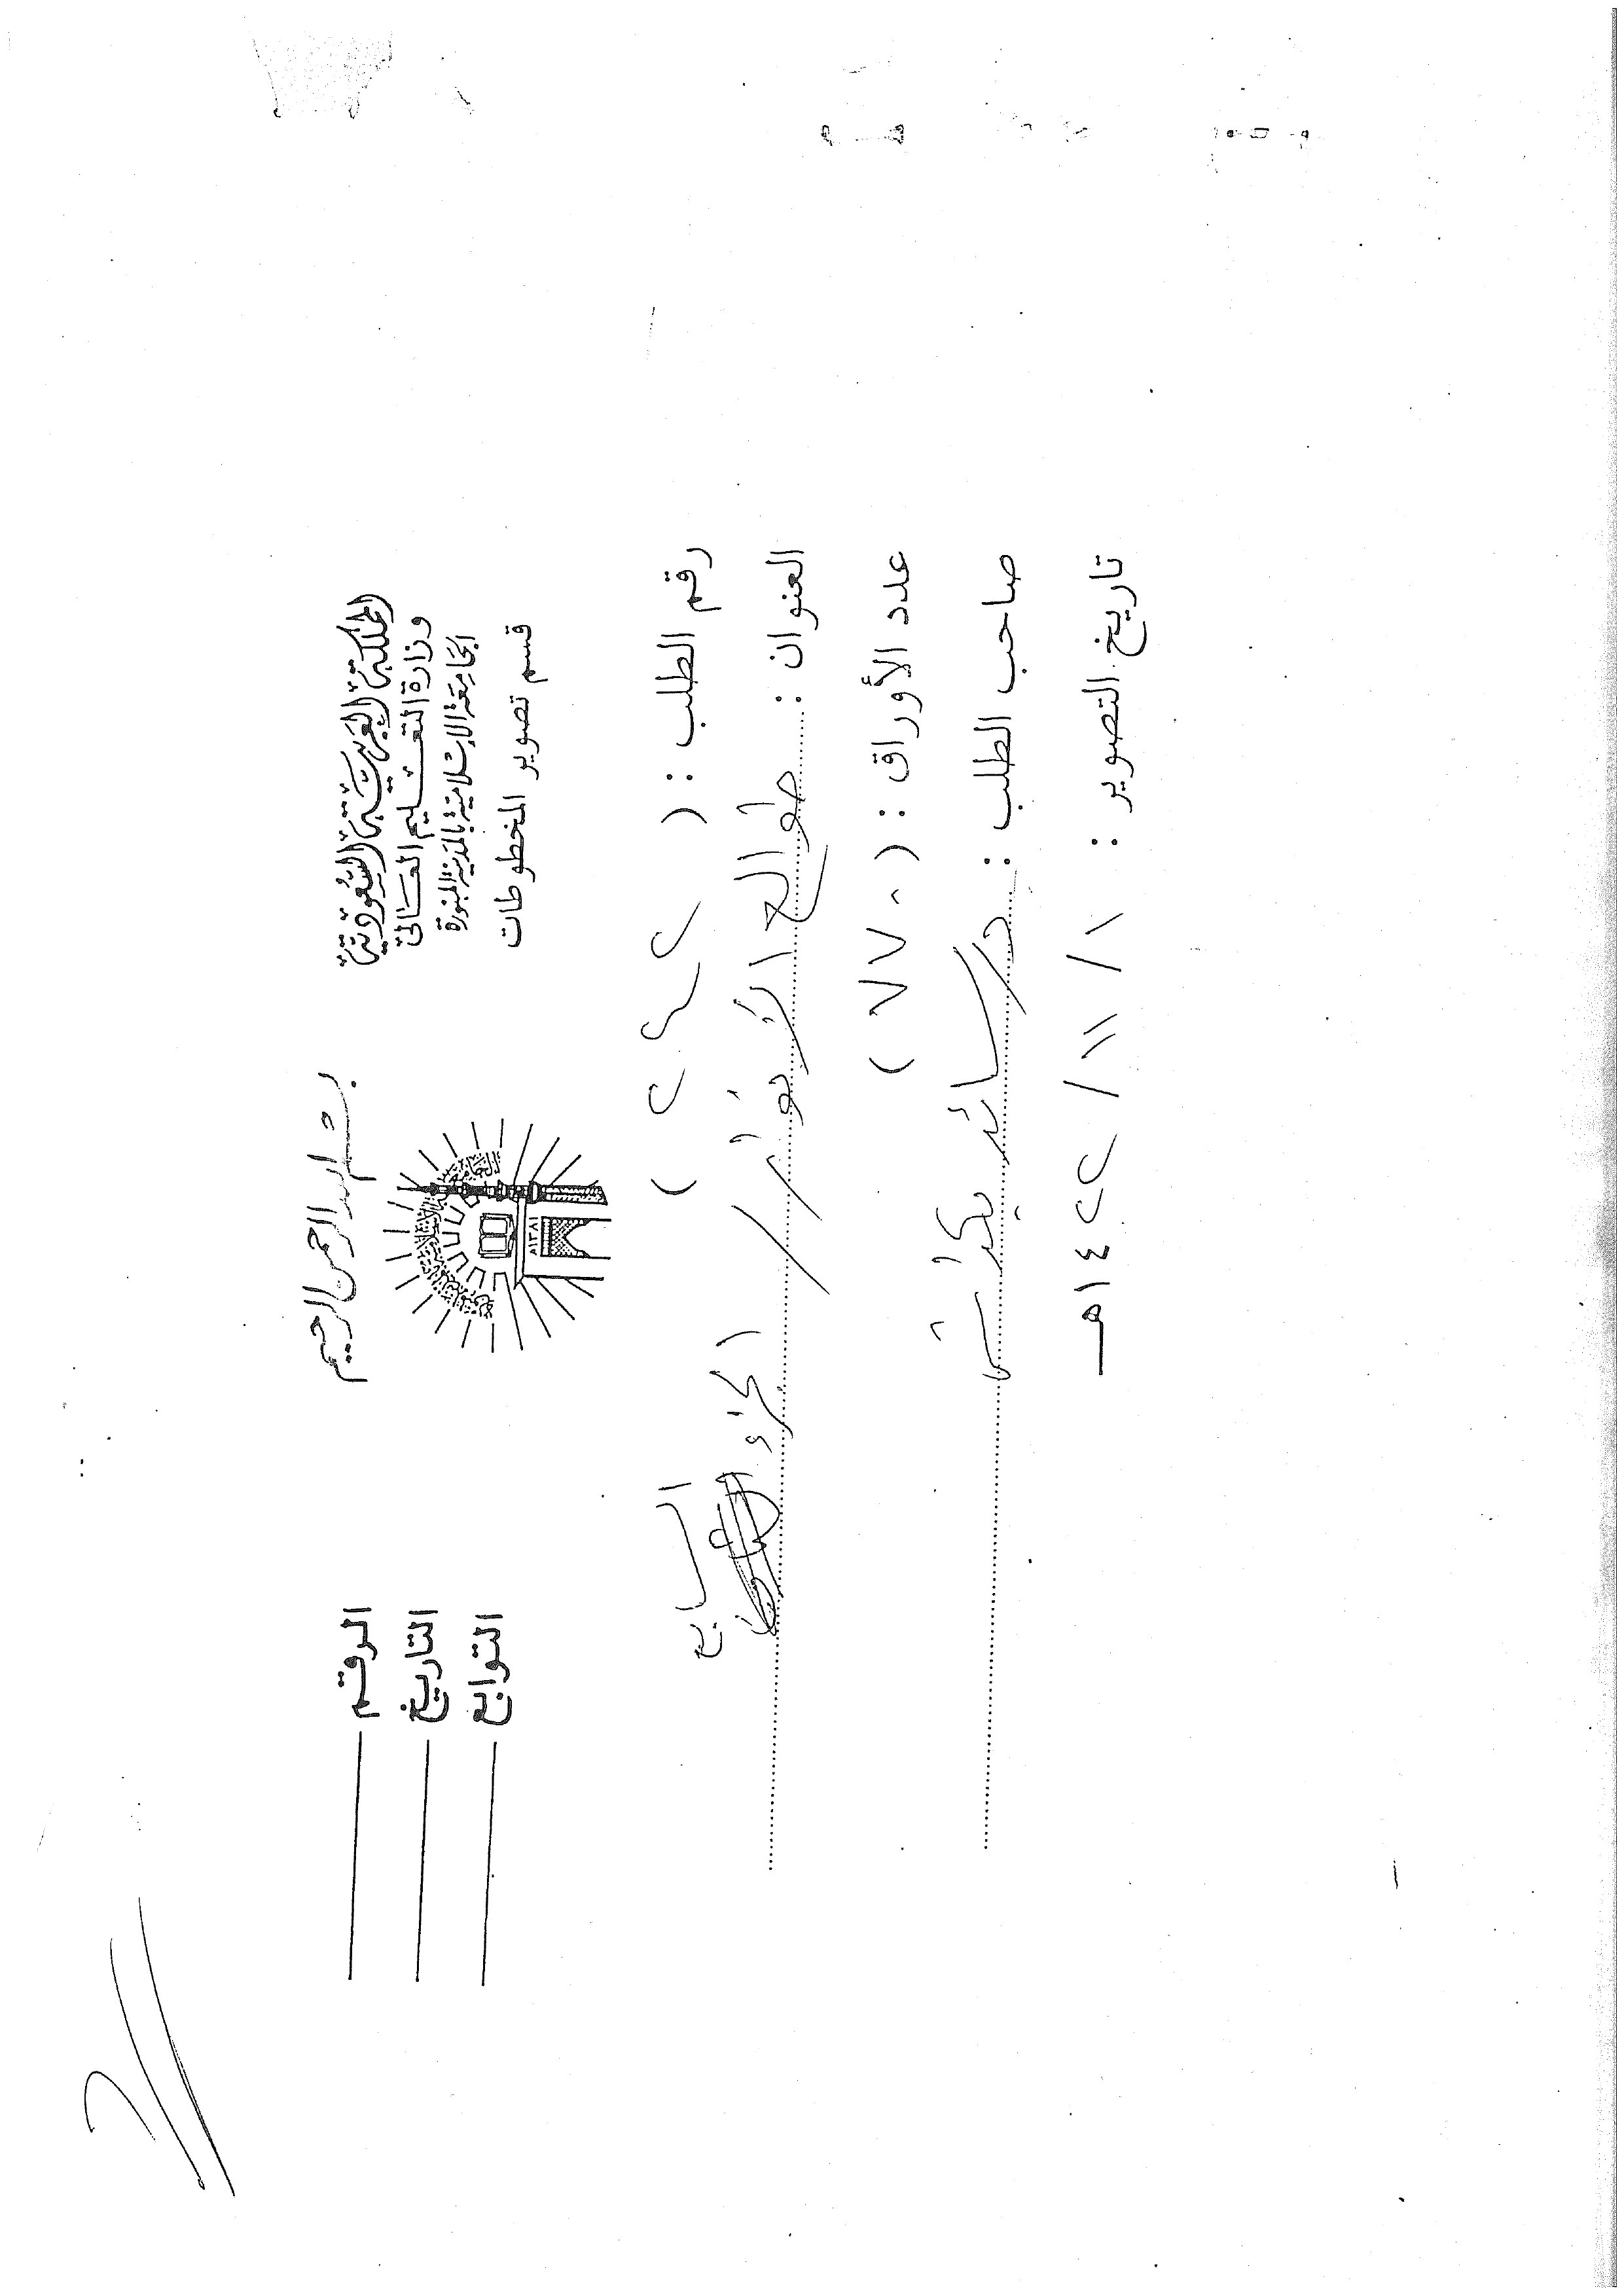 المملكة العربية السعودية
وزارة التعليم العالي
الجامعة الإسلامية بالمدينة المنورة
قسم تصوير المخطوطات
بسم الله الرحمن الرحيم
١٣٨١هـ
الرقم
التاريخ
التوابع
رقم الطلب : ( ٢٤٢ )
العنوان : طوالع الأنوار / الجزء السابع
عدد الأوراق : ( ٧٧٠ )
صاحب الطلب : د/ سائد بكداش
تاريخ التصوير : ١ / ١١ / ١٤٢٢هـ